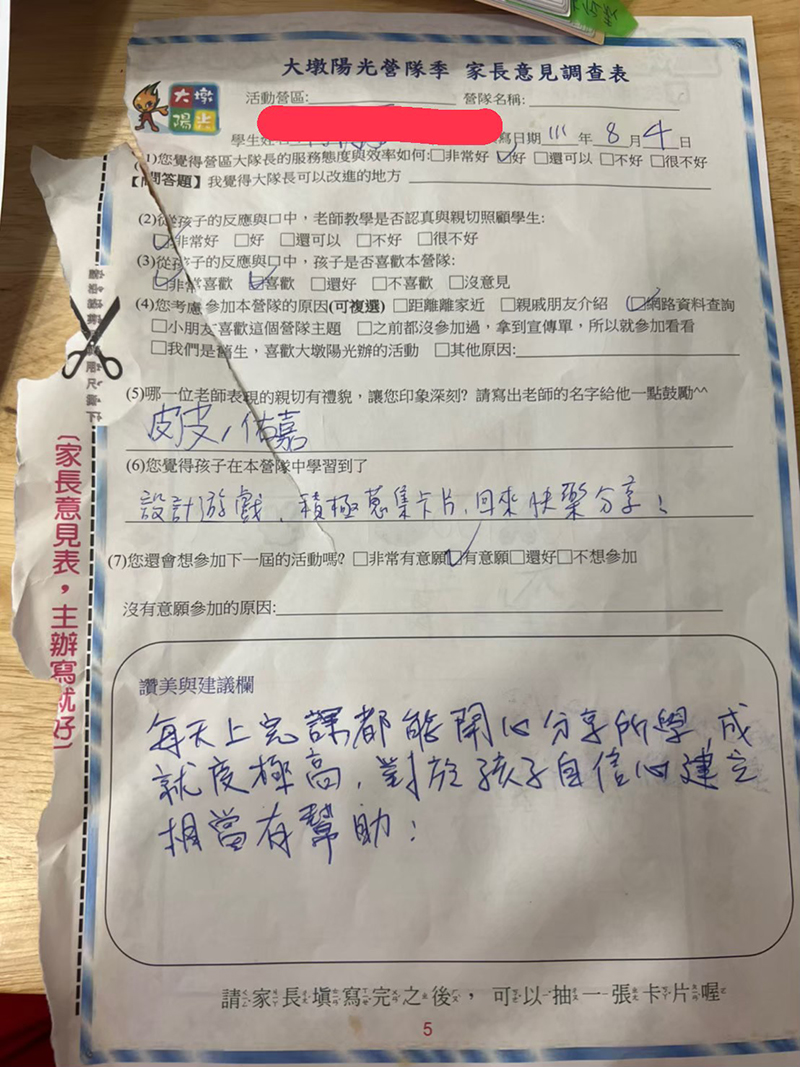 大墩陽光營隊季 家長意見調查表
大墩
陽光
活動營區: 營隊名稱:
學生姓 寫日期 111 年 8 月 4 日
(1)您覺得營區大隊長的服務態度與效率如何:□非常好 ☑好 □還可以 □不好 □很不好
【問答題】我覺得大隊長可以改進的地方
(2)從孩子的反應與口中，老師教學是否認真與親切照顧學生:
☑非常好 □好 □還可以 □不好 □很不好
(3)從孩子的反應與口中，孩子是否喜歡本營隊:
☑非常喜歡 ☑喜歡 □還好 □不喜歡 □沒意見
(4)您考慮參加本營隊的原因(可複選) □距離離家近 □親戚朋友介紹 ☑網路資料查詢
□小朋友喜歡這個營隊主題 □之前都沒參加過，拿到宣傳單，所以就參加看看
□我們是舊生，喜歡大墩陽光辦的活動 □其他原因:
(5)哪一位老師表現的親切有禮貌，讓您印象深刻? 請寫出老師的名字給他一點鼓勵^^
皮皮/佑嘉
(6)您覺得孩子在本營隊中學習到了
設計游戲、積極蒐集卡片、回來快樂分享!
(7)您還會想參加下一屆的活動嗎? □非常有意願☑有意願□還好□不想參加
沒有意願參加的原因:
讚美與建議欄
每天上完課都能開心分享所學,成
就度極高,對於孩子自信心建立
相當有幫助!
請家長填寫完之後，可以抽一張卡片喔
5
(家長意見表，主辦寫就好)